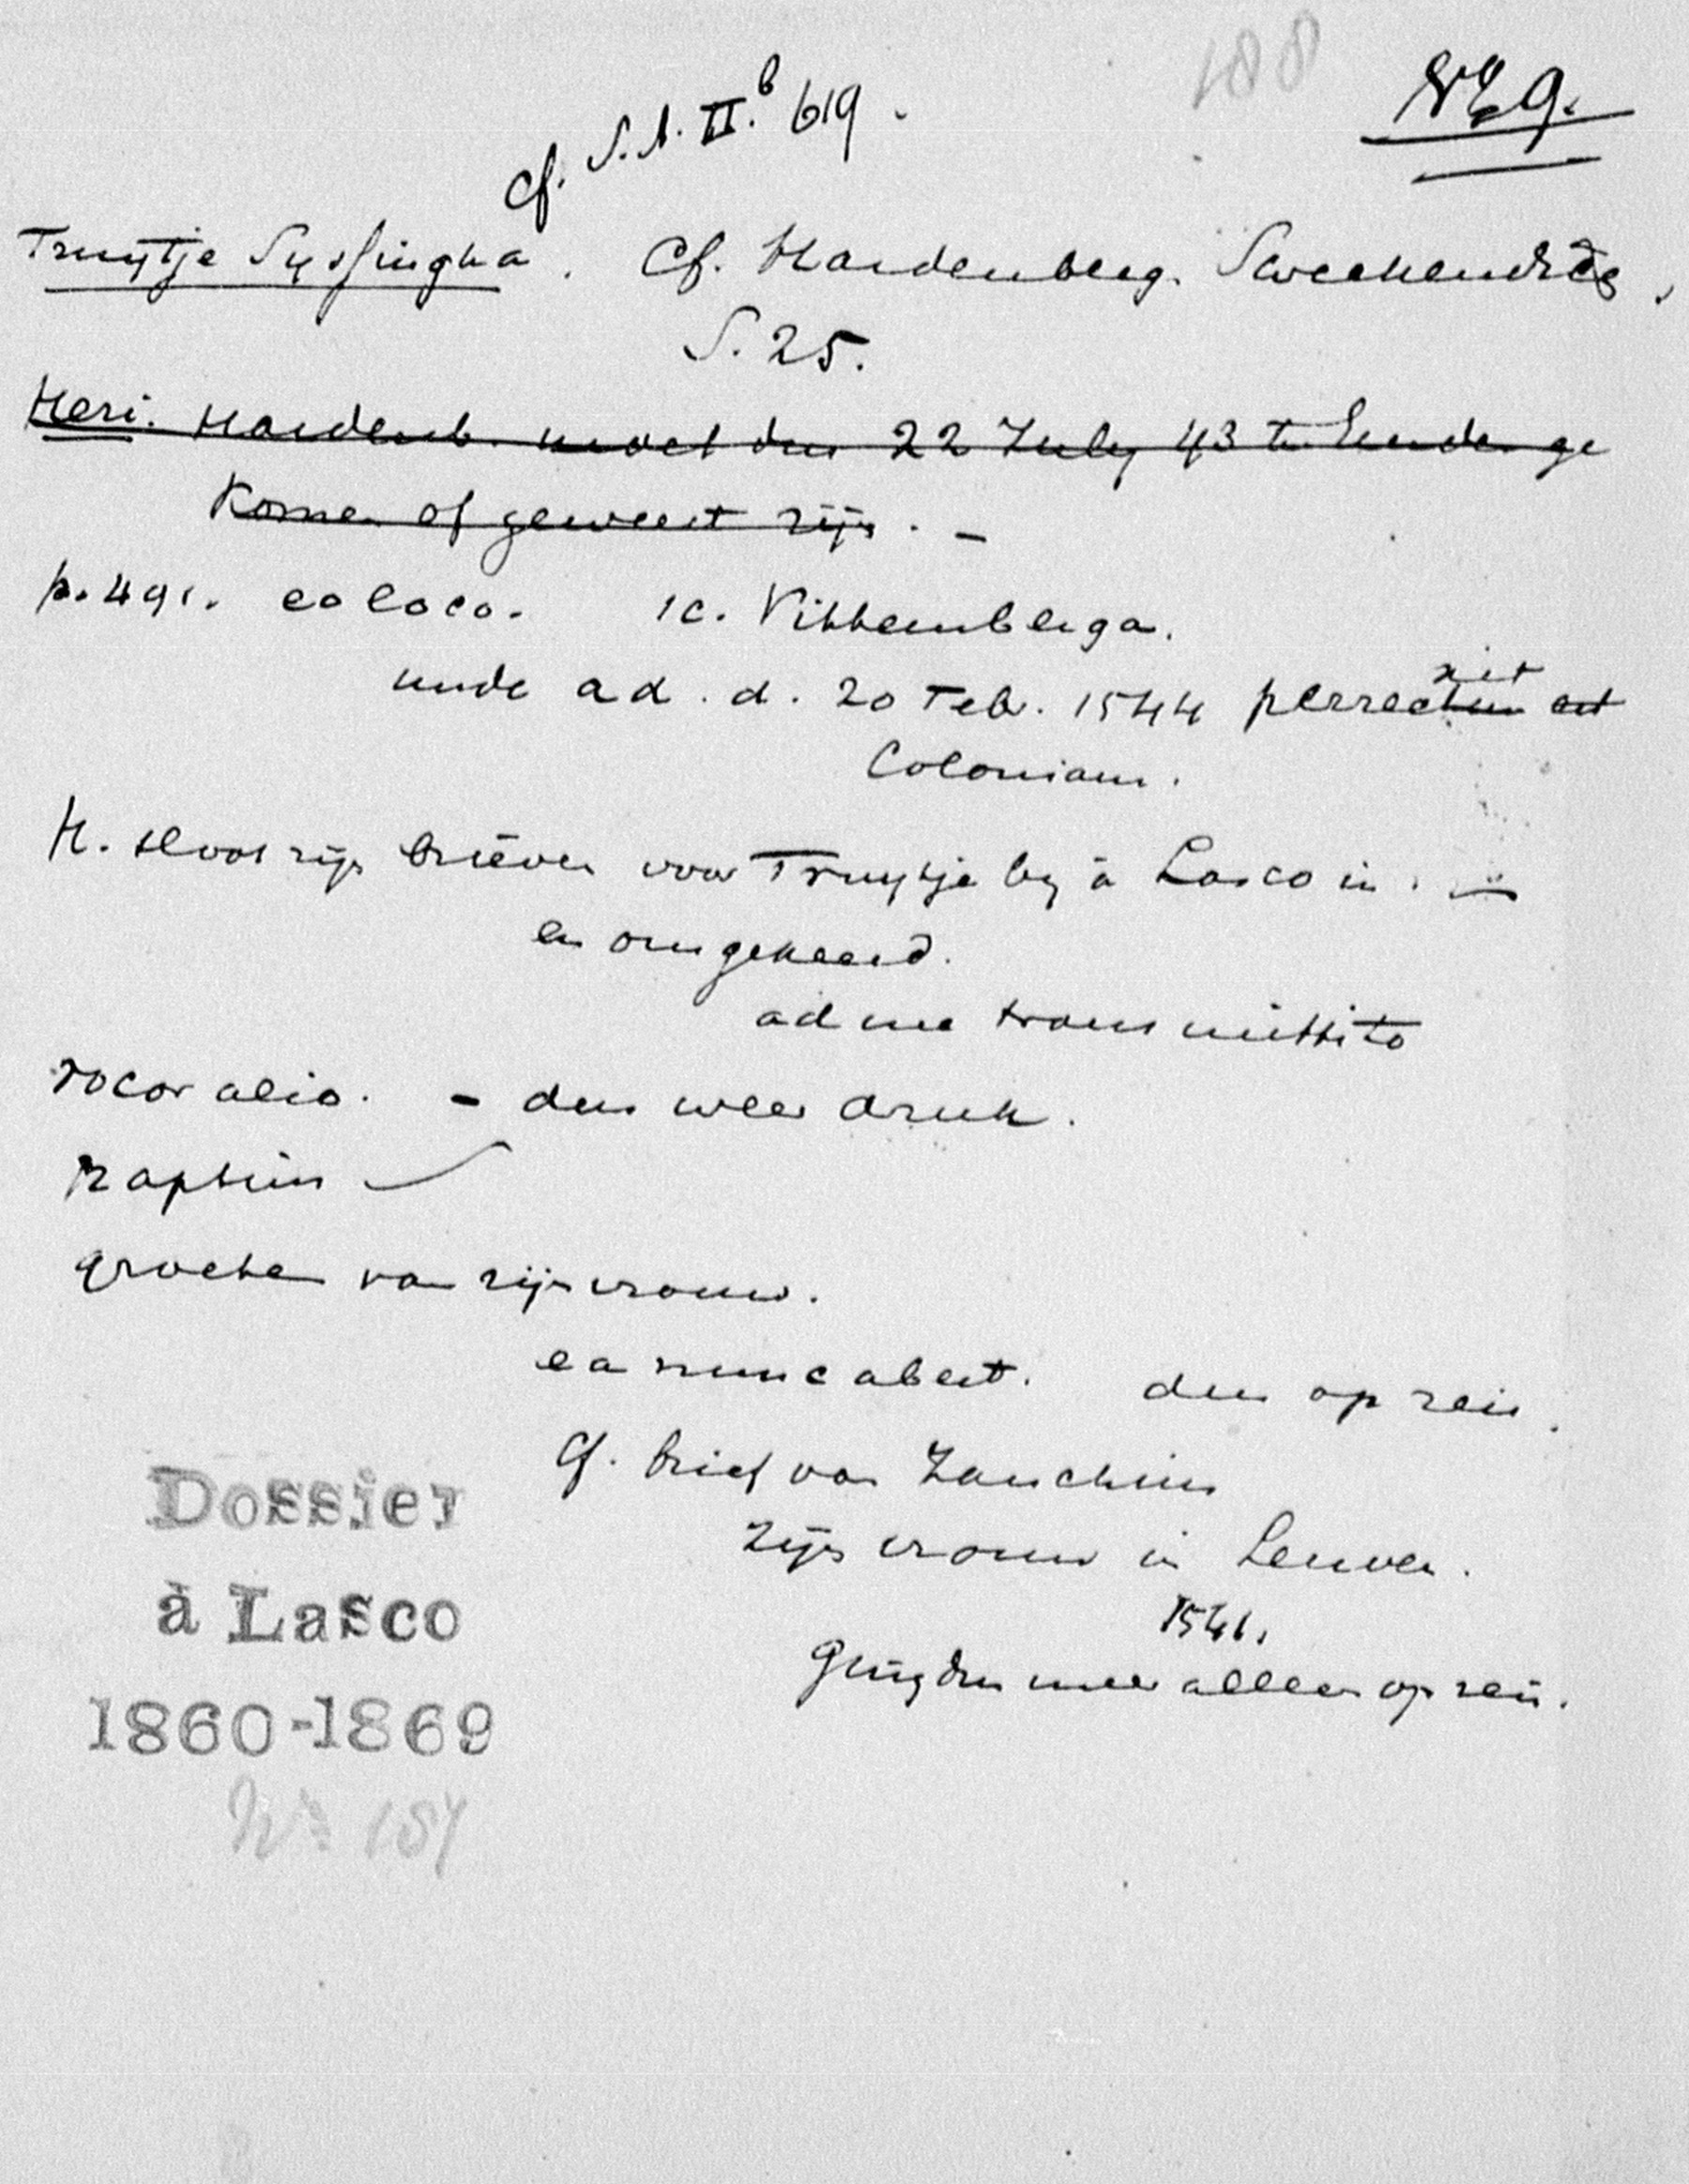 188
N° 9.
cf. S. A. II.b 619.
Truytje Syssingha. Cf. Hardenberg. Sweekendr
S. 25.
Heri. Hardenb. moet den 22 July 43 te Emden ge
komen of geweest zijn. –
p. 491. eo loco. sc. Vittemberga.
unde ad. d. 20 Feb. 1544 perrectum est xit
Coloniam.
H. sloot zijn brieven voor Truytje by à Lasco in
en omgekeerd.
ad me transmittito
vocor alio. – dus weer druk.
raptim
groeten van zijn vrouw.
ea nunc abest. dus op reis.
Cf. brief van Zanchius
zijn vrouw in Leuven.
1541.
Ging dus meer alleen op reis.
Dossier
à Lasco
1860-1869
N° 187